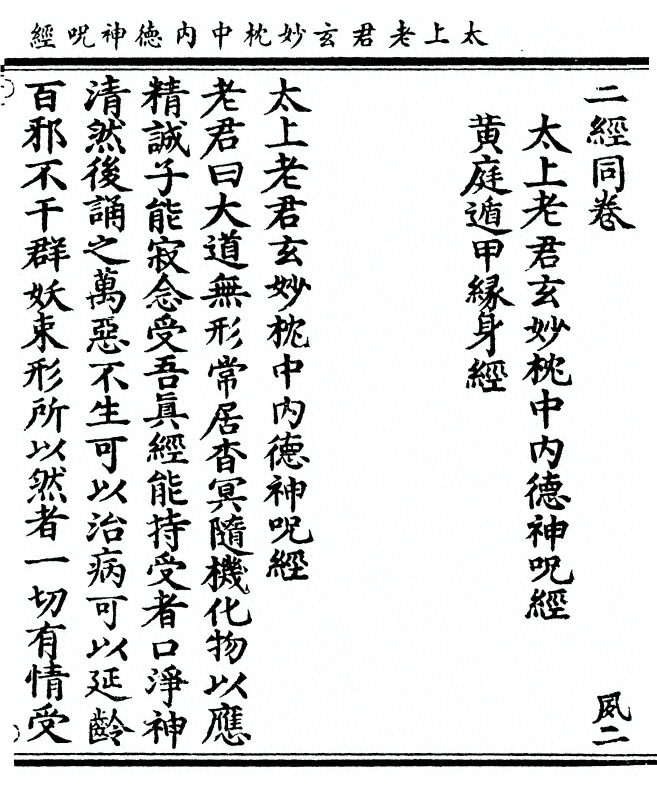 太上老君玄妙枕中内德神呪經
二經同卷
夙二
太上老君玄妙枕中内德神呪經
黄庭遁甲緣身經
太上老君玄妙枕中内德神呪經
老君曰大道無形常居杳冥隨機化物以應
精誠子能寂念受吾眞經能持受者口淨神
清然後誦之萬惡不生可以治病可以延齡
百邪不干群妖束形所以然者一切有情受